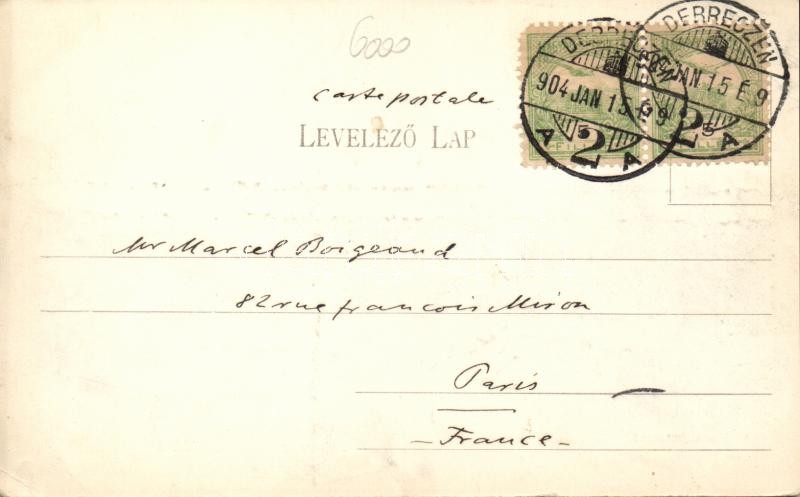 6000
DEBRECZEN
904 JAN 15 E 9
2
A A
DEBRECZEN
904 JAN 15 E 9
A
5 FILL
carte postale
LEVELEZŐ LAP
Mr Marcel Boigeaud
82 rue francois Miron
Paris
- France -